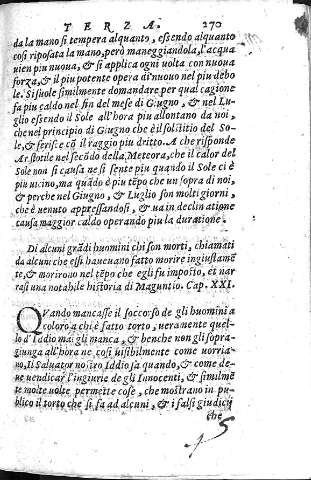 TERZA. 270
da la mano si tempera alquanto, essendo alquanto
cosi riposata la mano, però maneggiandola, l'acqua
uien piu nuoua, & si applica ogni uolta con nuoua
forza, & il piu potente opera di nuouo nel piu debo
le. Si suole similmente domandare per qual cagione
fa piu caldo nel fin del mese di Giugno, & nel Lu
glio essendo il Sole all'hora piu allontano da noi,
che nel principio di Giugno che è il solstitio del So-
le, & ferisce cō il raggio piu dritto. A che risponde
Aristotile nel secōdo della Meteora, che il calor del
Sole non si causa ne si sente piu quando il Sole ci è
piu uicino, ma quādo è piu tēpo che un sopra di noi,
& perche nel Giugno, & Luglio son molti giorni,
che è uenuto appressandosi, & ua in declinatione
causa maggior caldo operando piu la duratione.
Di alcuni grādi huomini chi son morti, chiamati
da alcun che essi haueuano fatto morire ingiustamē
te, & morirono nel tēpo che egli fu imposto, et nar
rasi una notabile historia di Maguntio. Cap. XXI.
QVando mancasse il soccorso de gli huomini a
coloro a chi è fatto torto, ueramente quel-
lo d'Iddio mai gli manca, & benche non gli sopra-
giunga all'hora ne così uisibilmente come uorria-
no, Il Saluator nostro Iddio sa quando, & come de-
ue uendicar l'ingiurie de gli Innocenti, & similmē
te molte uolte permette cose, che mostrano in pu-
blico il torto che si fa ad alcuni, & i falsi giudicij
che